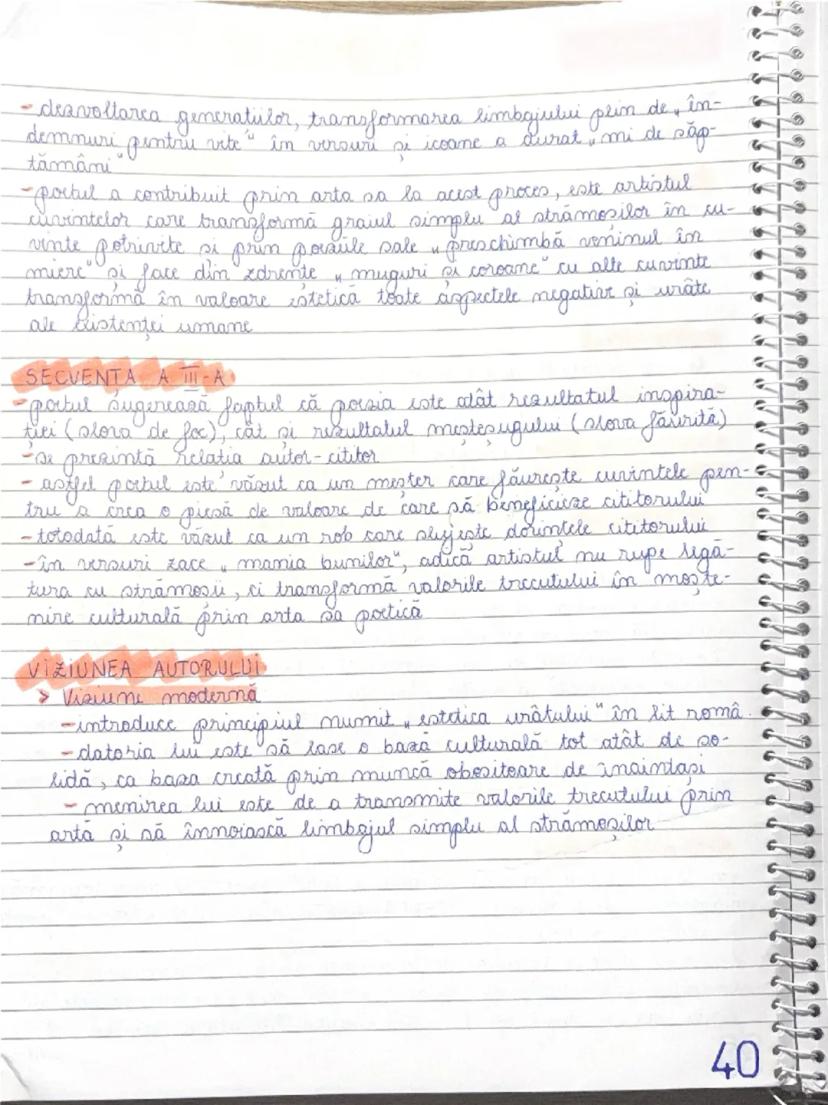 - dezvoltarea generațiilor, transformarea limbajului plin de „în-
demnuri pentru vite" în versuri și icoane a durat „mi de săp-
tămâni"
- poetul a contribuit prin arta sa la acest proces, este artistul
cuvintelor care transformă graiul simplu al strămoșilor în cu-
vinte potrivite și prin poeziile sale „preschimbă veninul în
miere" și face din zdrențe „muguri și coroane" cu alte cuvinte
transformă în valoare estetică toate aspectele negative și urâte
ale existenței umane
SECVENȚA A III-A
- poetul sugerează faptul că poezia este atât rezultatul inspira-
ției (slova de foc), cât și rezultatul meșteșugului (slova făurită)
- se prezintă relația autor-cititor
- astfel poetul este văzut ca un meșter care făurește cuvintele pen-
tru a crea o piesă de valoare de care să beneficieze cititorului
- totodată este văzul ca un rob care slujește dorințele cititorului
- în versuri zace „mania bunilor", adică artistul nu rupe legă-
tura cu strămoșii, ci transformă valorile trecutului în moște-
nire culturală prin arta sa poetică
VIZIUNEA AUTORULUI
> Viziune modernă
- introduce principiul numit „estetica urâtului" în lit romă.
- datoria lui este să lase o bază culturală tot atât de so-
lidă, ca baza creată prin muncă obositoare de înaintași
- menirea lui este de a transmite valorile trecutului prin
artă și să înnoiască limbajul simplu al strămoșilor
40